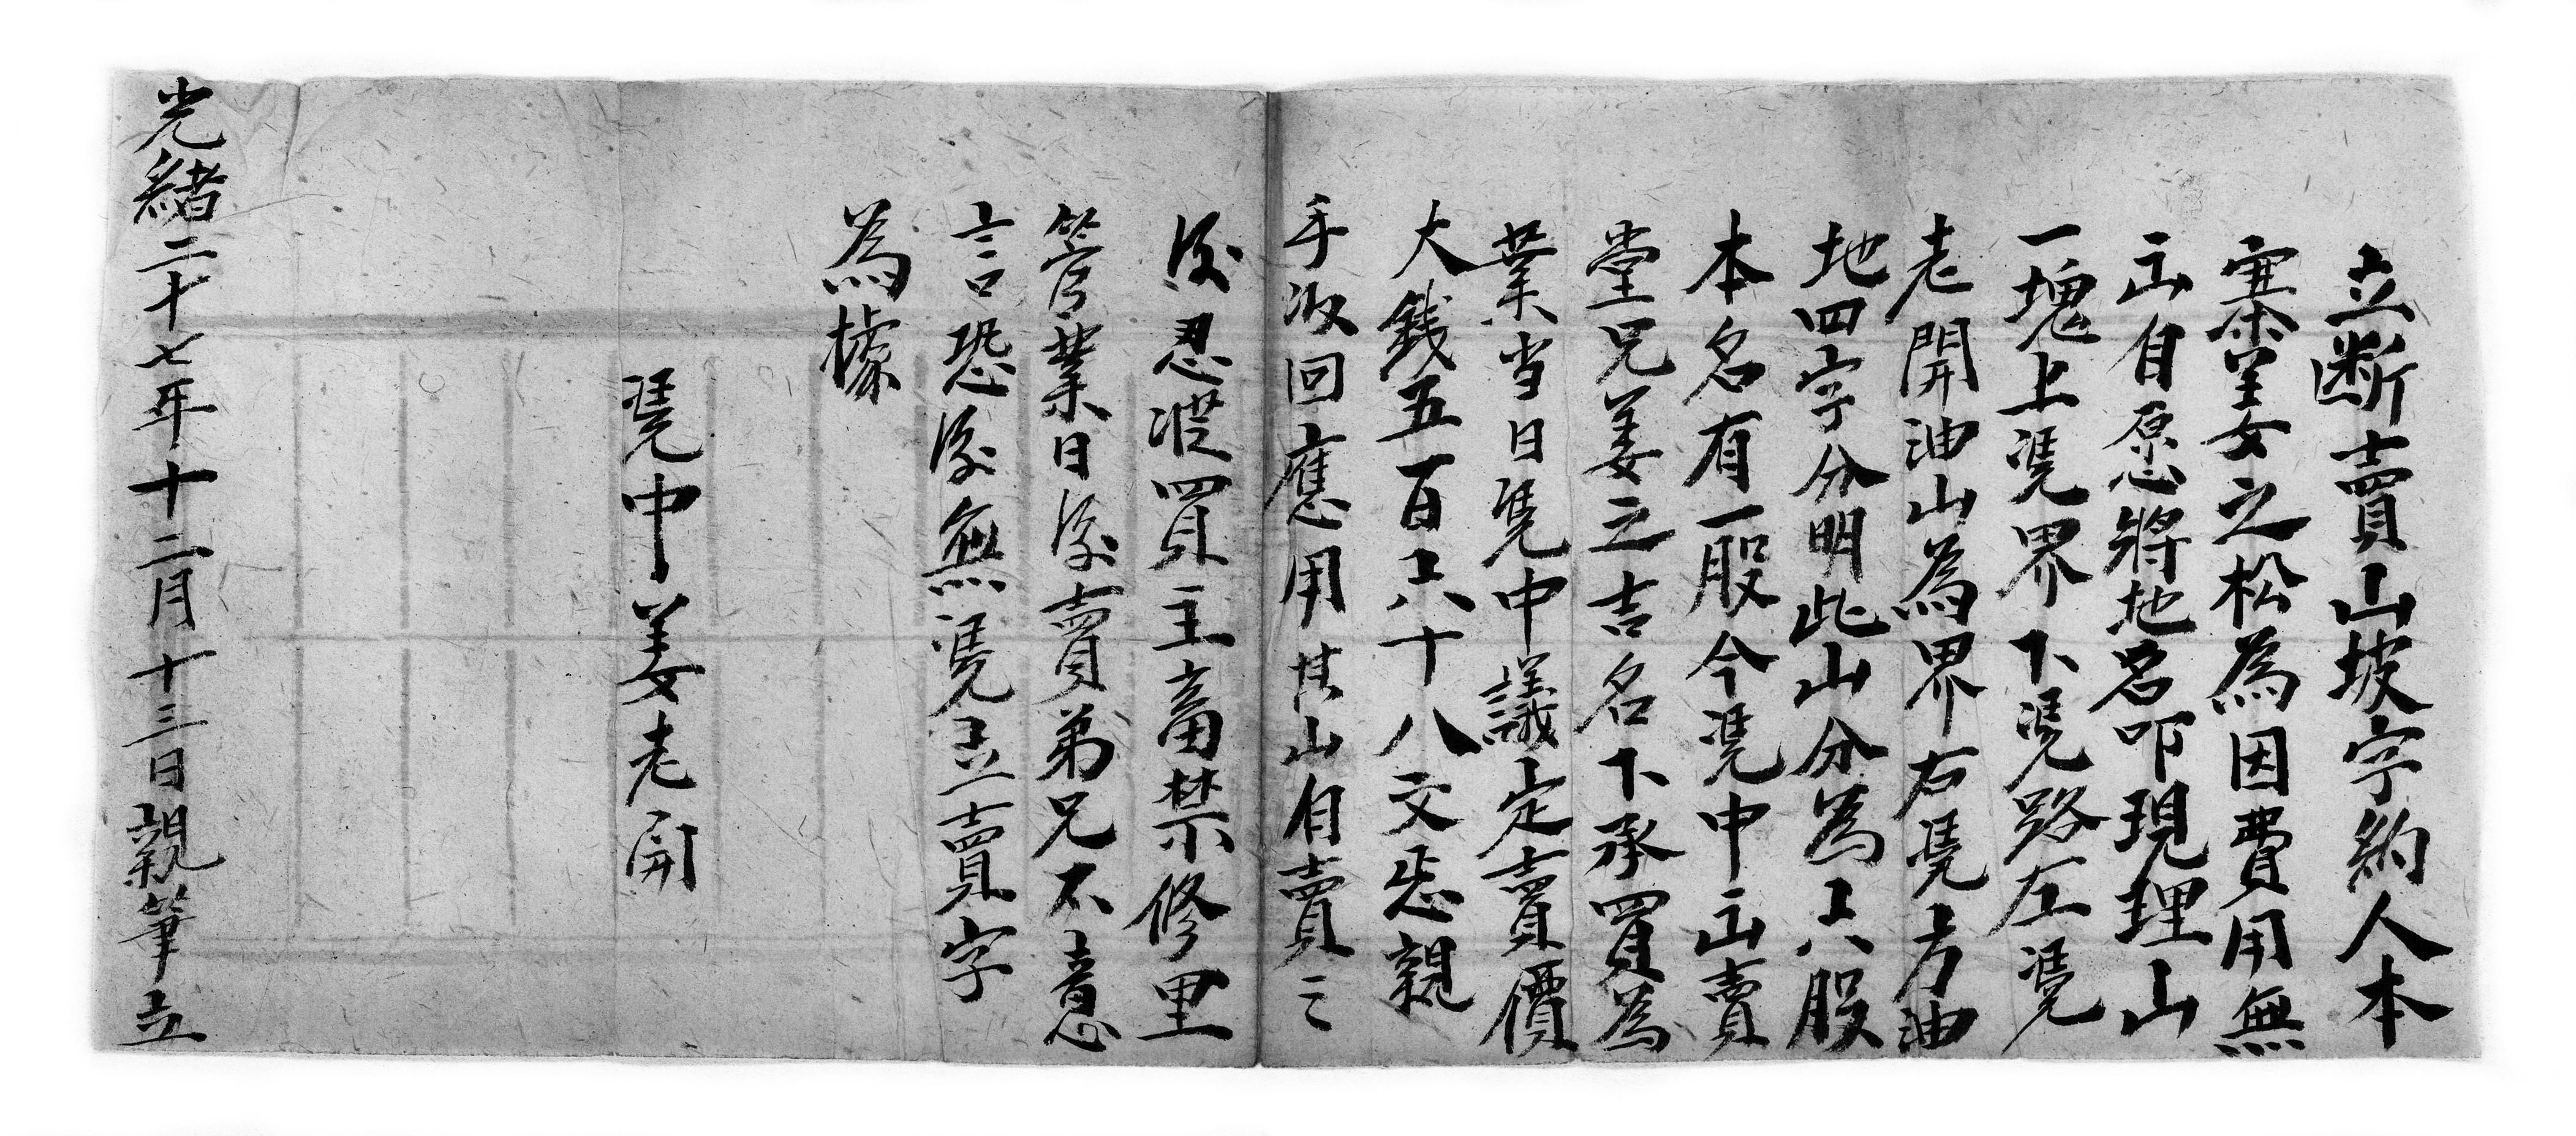 立断賣山坡字約人本
寨姜之松為因費用無
出自愿將地名吅現理山
一塊上凴界下凴路左凴
老開油山為界右凴方油
地四字分明此山分為六股
本名有一股今凴中出賣
堂兄姜之吉名下承買為
業当日凴中議定賣價
大錢五百六十八文悉親
手收回應用其山自賣之
後忍慿買主畜禁修里
管業日後賣弟兄不意
言恐後無凴立賣字
為據
凴中姜老開
光緒二十七年十二月十三日親筆立